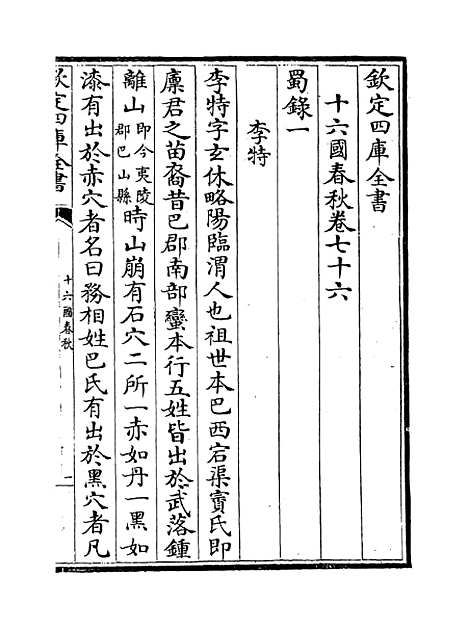 欽定四庫全書
十六國春秋卷七十六
蜀錄一
李特
李特字玄休略陽臨渭人也祖世本巴西宕渠賨氏即
廪君之苗裔昔巴郡南部蠻本行五姓皆出於武落鍾
離山即今夷陵郡巴山縣時山崩有石穴二所一赤如丹一黑如
漆有出於赤穴者名曰務相姓巴氏有出於黑穴者凡
欽定四庫全書
十六國春秋